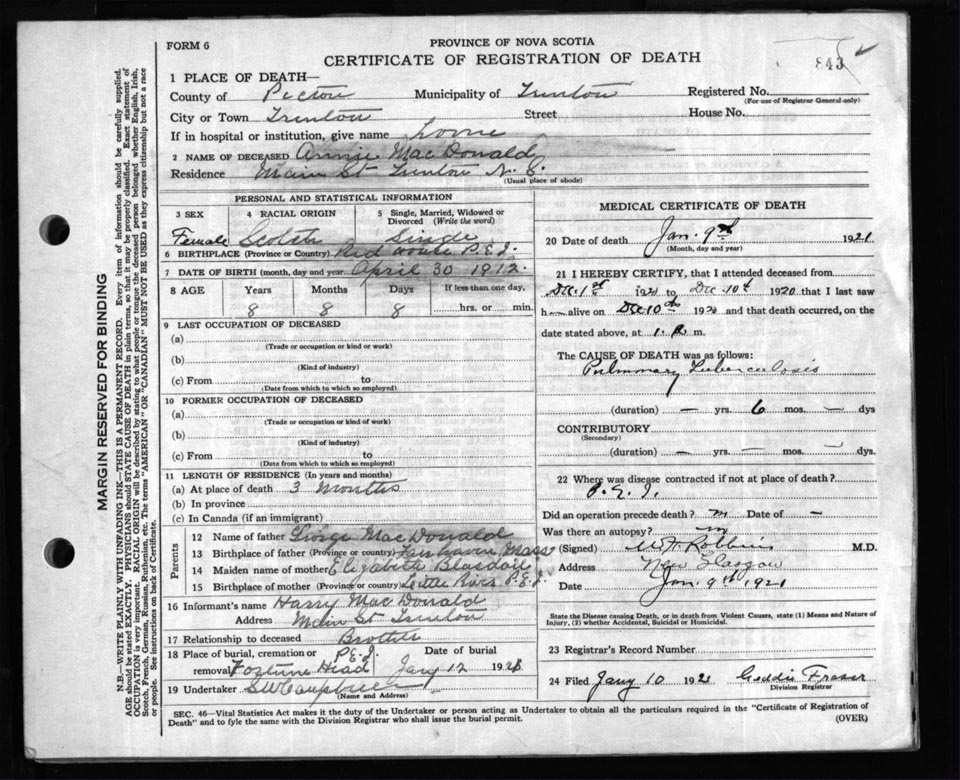 FORM 6
PROVINCE OF NOVA SCOTIA
CERTIFICATE OF REGISTRATION OF DEATH
843
1 PLACE OF DEATH—
County of Pictou Municipality of Trenton Registered No.
(For use of Registrar General only)
City or Town Trenton Street House No.
If in hospital or institution, give name
2 NAME OF DECEASED Annie MacDonald
Residence Main St Trenton N.S.
(Usual place of abode)
PERSONAL AND STATISTICAL INFORMATION
3 SEX 4 RACIAL ORIGIN 5 Single, Married, Widowed or Divorced (Write the word)
Female Scotch Single
6 BIRTHPLACE (Province or Country) Red P.E.I.
7 DATE OF BIRTH (month, day and year) April 30 1912
8 AGE Years Months Days If less than one day,
8 8 8 hrs. or min.
9 LAST OCCUPATION OF DECEASED
(a)
(Trade or occupation or kind or work)
(b)
(Kind of industry)
(c) From to
(Date from which to which so employed)
10 FORMER OCCUPATION OF DECEASED
(a)
(Trade or occupation or kind of work)
(b)
(Kind of industry)
(c) From to
(Date from which to which so employed)
11 LENGTH OF RESIDENCE (In years and months)
(a) At place of death 3 months
(b) In province
(c) In Canada (if an immigrant)
Parents
12 Name of father George MacDonald
13 Birthplace of father (Province or country) Fairhaven Mass
14 Maiden name of mother Elizabeth
15 Birthplace of mother (Province or country) P.E.I.
16 Informant's name Harry MacDonald
Address Main St Trenton
17 Relationship to deceased Brother
18 Place of burial, cremation or removal P.E.I. Fortune Head Date of burial Jany 12 192
19 Undertaker
(Name and Address)
MEDICAL CERTIFICATE OF DEATH
20 Date of death Jan. 9th 1921
(Month, day and year)
21 I HEREBY CERTIFY, that I attended deceased from
Dec. 1st 192 to Dec. 10th 1920 that I last saw
h alive on Dec 10th 192 and that death occurred, on
date stated above, at 1. m.
The CAUSE OF DEATH was as follows:
Pulmonary Tuberculosis
(duration) — yrs. 6 mos. — dys
CONTRIBUTORY
(Secondary)
(duration) — yrs. — mos. — dys.
22 Where was disease contracted if not at place of death?
P.E.I.
Did an operation precede death? Date of —
Was there an autopsy?
(Signed) Robbins M.D.
Address New Glasgow
Date Jan. 9th 1921
State the Disease causing Death, or in death from Violent Causes, state (1) Means and Nature of
Injury, (2) whether Accidental, Suicidal or Homicidal.
23 Registrar's Record Number
24 Filed Jany 10 192 Geddie Fraser
Division Registrar
SEC. 46—Vital Statistics Act makes it the duty of the Undertaker or person acting as Undertaker to obtain all the particulars required in the "Certificate of Registration of
Death" and to fyle the same with the Division Registrar who shall issue the burial permit.
(OVER)
MARGIN RESERVED FOR BINDING
N.B.—WRITE PLAINLY WITH UNFADING INK—THIS IS A PERMANENT RECORD. Every item of information should be carefully supplied.
AGE should be stated EXACTLY. PHYSICIANS should STATE CAUSE OF DEATH in plain terms, so that it may be properly classified. Exact statement of
OCCUPATION is very important. RACIAL ORIGIN will be described by stating to what people or tongue the deceased person belonged whether English, Irish,
Scotch, French, German, Russian, Ruthenian, etc. The terms "AMERICAN" OR "CANADIAN" MUST NOT BE USED as they express citizenship but not a race
or people. See instructions on back of Certificate.